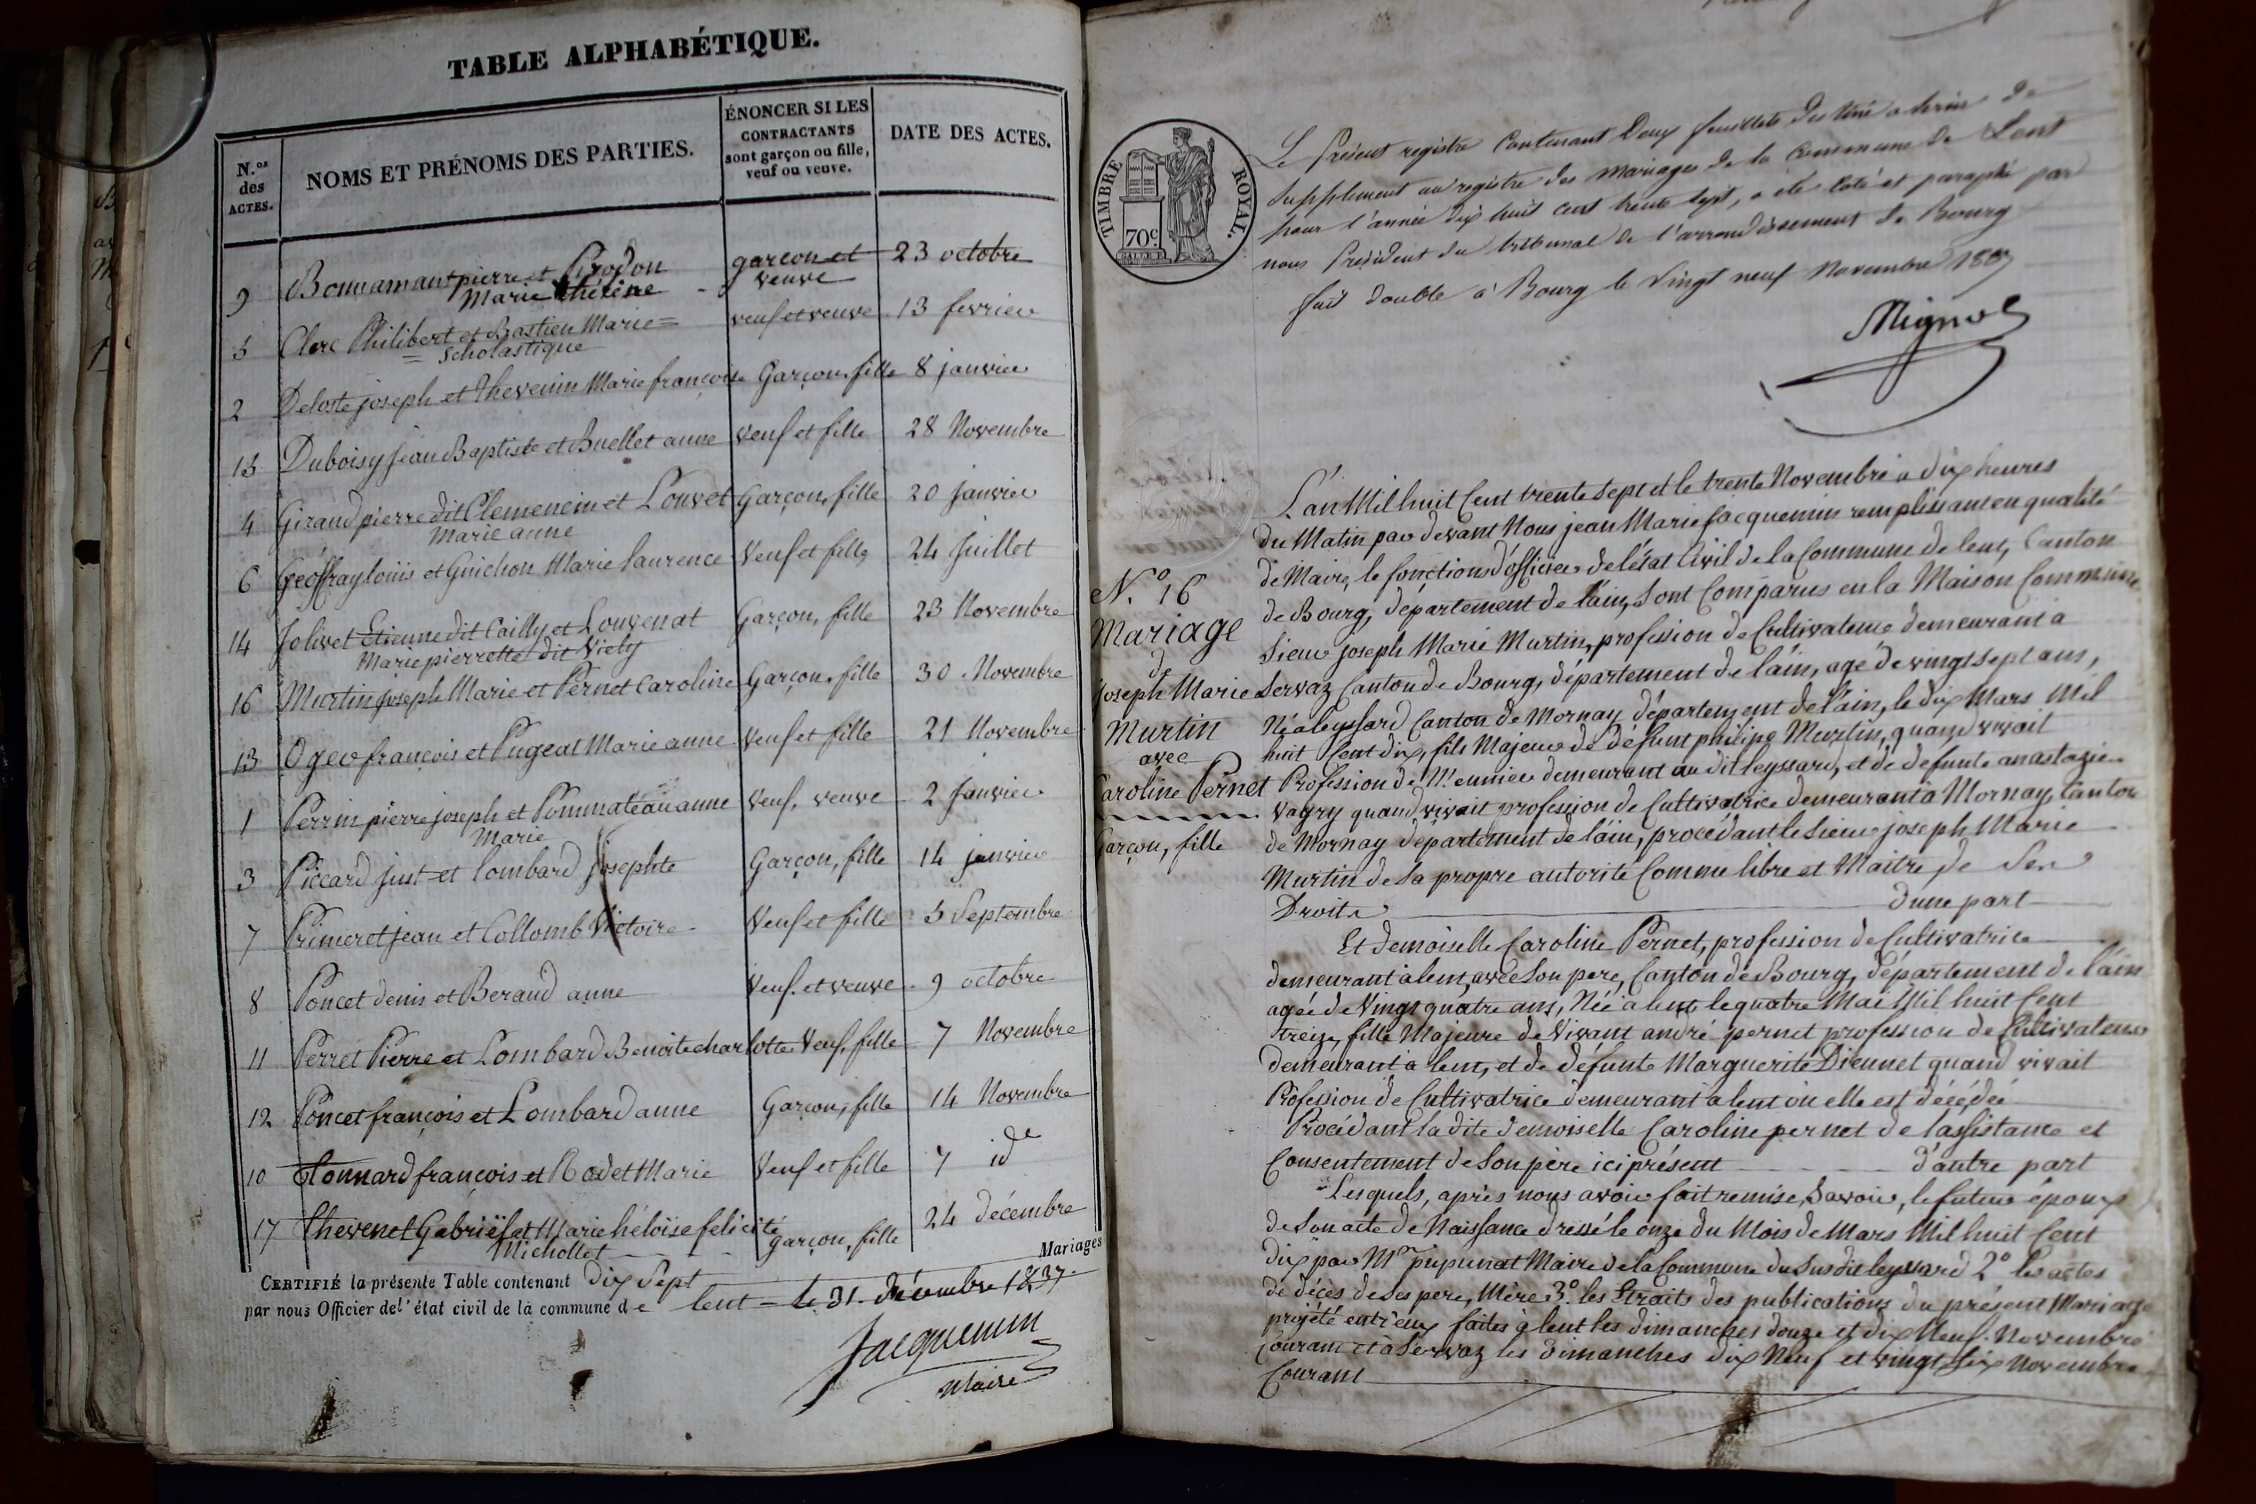 TABLE ALPHABÉTIQUE.
N.os des ACTES.
NOMS ET PRÉNOMS DES PARTIES.
ÉNONCER SI LES CONTRACTANTS sont garçon ou fille, veuf ou veuve.
DATE DES ACTES.
9 Bonnamant pierre et Pirodon garçon et 23 octobre
Marie thérèse veuve
5 Clerc Philibert et Bastien Marie= veuf et veuve 13 fevrier
= Scholastique
2 Deloste joseph et thevenin Marie françoise Garçon, fille 8 janvier
15 Duboisy jean Baptiste et Buellet anne Veuf et fille 28 Novembre
4 Giraud pierre dit Clemencin et Louvet Garçon, fille 20 janvier
Marie anne
6 Géoffray loüis et Guichon Marie laurence Veuf et fille 24 Juillet
14 Jolivet Etienne dit Cailly et Louvenat Garçon, fille 23 Novembre
Marie pierrette dit Viely
16 Murtin joseph Marie et Pernet Caroline Garçon, fille 30 Novembre
13 Oger françois et Pugeat Marie anne Veuf et fille 21 Novembre
1 Perrin pierre joseph et Pommateau anne Veuf, veuve 2 Janvier
Marie
3 Piccard just et lombard josephte Garçon, fille 14 janvier
7 Primeret jean et Collomb Victoire Veuf et fille 5 Septembre
8 Poncet denis et Beraud anne Veuf et veuve 9 octobre
11 Perret Pierre et Lombard Benoite charlotte Veuf, fille 7 Novembre
12 Poncet françois et Lombard anne Garçon, fille 14 Novembre
10 françois et Rodet Marie Veuf et fille 7 id
17 Thevenet Gabriël et Marie héloïse felicité Garçon, fille 24 décembre
Michollet
Mariages
CERTIFIÉ la présente Table contenant dix Sept
par nous Officier de l'état civil de la commune de lent le 31 décembre 1837.
Jacquemin
Maire
TIMBRE ROYAL.
70c
Le Présent registre Contenant Deux feuillets destiné a servir de
Supplement au registre des mariages de la commune de Lent
pour l'année dix huit cent trente sept, a été coté et paraphé par
nous Président du tribunal de l'arrondissement de Bourg
fait double à Bourg le vingt neuf Novembre 1837
L'an Mil huit Cent trente Sept et le trente Novembre à dix heures
du Matin par devant Nous jean Marie Jacquemin remplissant en qualité
de Maire, le fonctions d'officier de l'état Civil de la Commune de lent, Canton
de Bourg, département de l'ain, Sont Comparus en la Maison Commune
Sieur joseph Marie Murtin, profession de Cultivateur demeurant à
Servaz Canton de Bourg, département de l'ain, agé de vingt Sept ans,
Né a leyssard Canton de Mornay département de l'ain, le dix Mars Mil
huit Cent dix, fils Majeur de défunt philipe Murtin, quand vivait
Profession de Meunier demeurant au dit leyssard, et de defunte anastazie
Vagry quand vivait profession de Cultivatrice demeurant a Mornay, Canton
de Mornay département de l'ain, procédant le Sieur joseph Marie
Murtin de Sa propre autorité Comme libre et Maitre de Ses
Droits d'une part
N.o 16
Mariage
de
joseph Marie
Murtin
avec
Caroline Pernet
Garçon, fille
Et demoiselle Caroline Pernet, profession de Cultivatrice
demeurant à lent, avec Son pere, Canton de Bourg, département de l'ain
agée de Vingt quatre ans, Née à lent le quatre Mai Mil huit Cent
treize, fille Majeure de Vivant andré pernet profession de Cultivateur
demeurant à lent, et de defunte Marguerite Diennet quand vivait
Profession de Cultivatrice demeurant à lent où elle est décédée
Procédant la dite demoiselle Caroline pernet de l'assistance et
Consentement de Son père ici présent d'autre part
Lesquels, après nous avoir fait remise, Savoir, le futur époux
de Son acte de Naissance dressé le onze du Mois de Mars Mil huit Cent
dix par Mr. pupunat Maire de la Commune du Susdit leyssard 2.o les actes
de décès de Ses pere, Mère 3.o les Extraits des publications du présent Mariage
projeté entr'eux faites à lent les dimanches douze et dix Neuf Novembre
Courant et à Servaz les dimanches dix Neuf et vingt Six Novembre
Courant